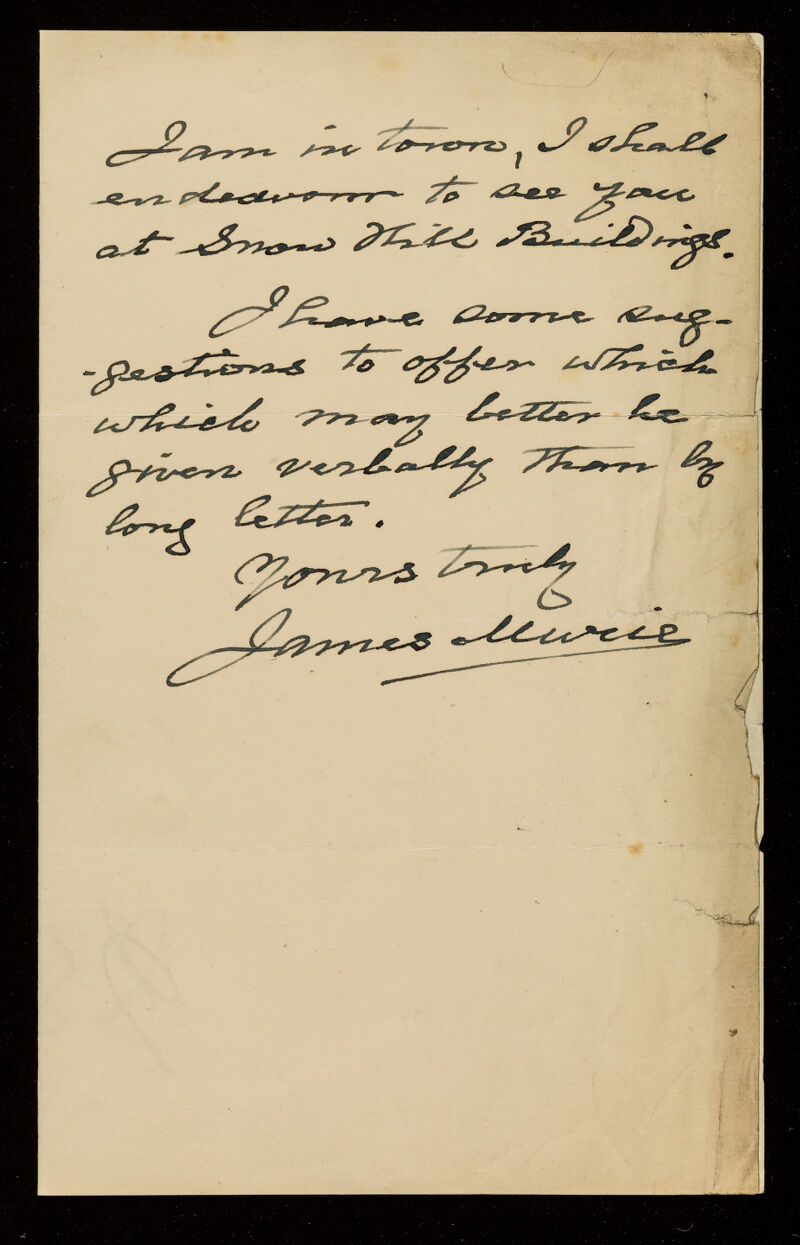 I am in town, I shall
endeavour to see you
at Snow Hill Buildings.
I have some sug-
-gestions to offer which
which may better be
given verbally than by
long letter.
Yours truly
James Murie